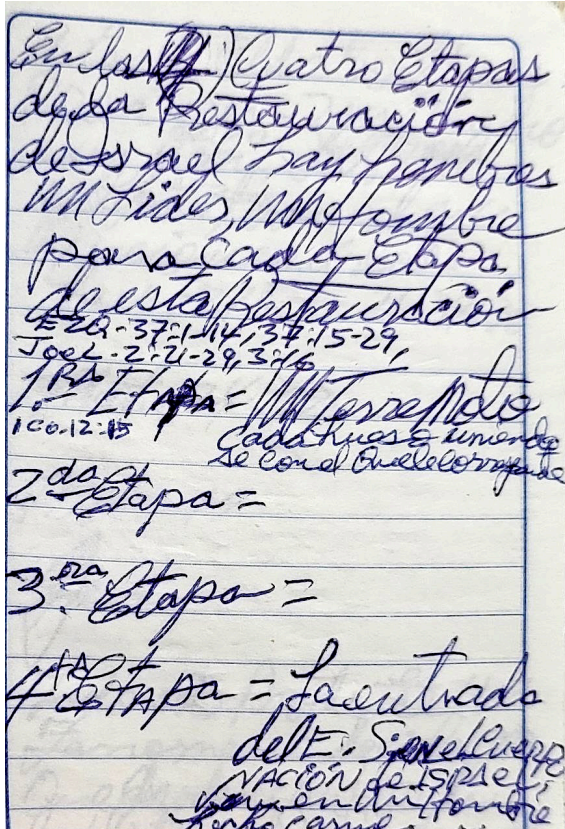 En las (4) Cuatro Etapas
de la Restauración
de Israel hay hombres
un Lider, un Hombre
para Cada Etapa
de esta Restauración
EZQ-37:1-14, 37:15-29,
Joel-2:21-29, 3:16
1.ra Etapa = Un Terremoto
1Co.12:15 Cada hueso uniendo
se con el que le corresponde
2da Etapa =
3.ra Etapa =
4ta Etapa = La entrada
del E. S. en el Cuerpo
NACIÓN de ISRAEL,
en un Hombre
hecho carne